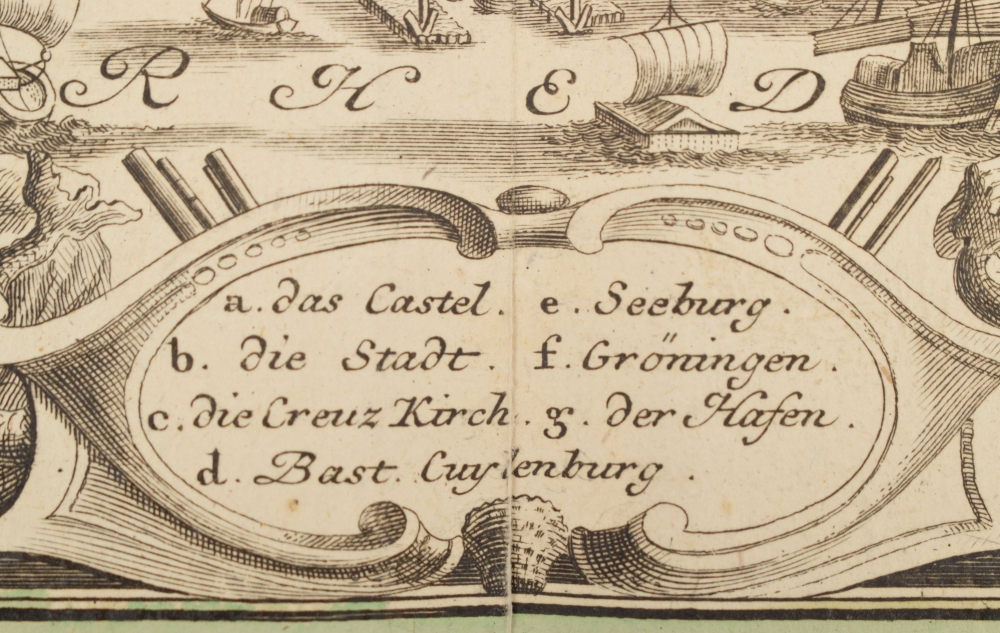 R H E D
a. das Castel. e. Seeburg.
b. die Stadt. f. Gröningen.
c. die Creuz Kirch. g. der Hafen.
d. Bast. Cuylenburg.